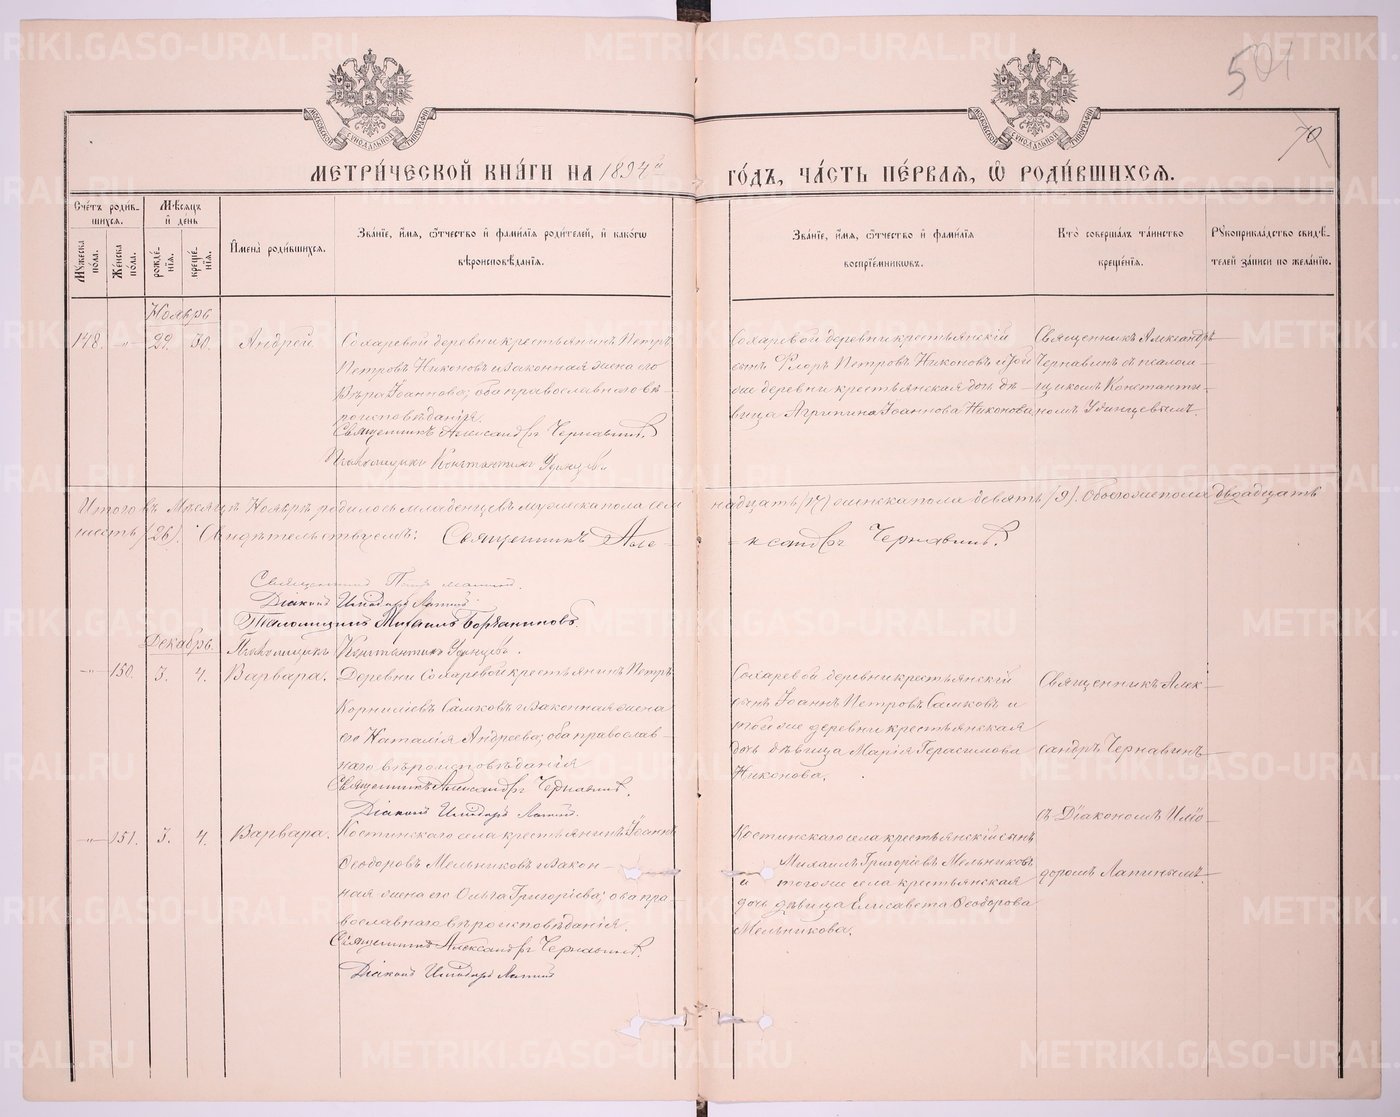 501
70
МЕТРИ́ЧЕСКОЙ КНИ́ГИ НА 1894 й ГО́ДЪ, ЧА́СТЬ ПЕ́РВАЯ, Ѡ РОДИ́ВШИХСЯ.
Сче́тъ роди́в-
шихся.
Мѣ́сяцъ
и҆ де́нь
Мꙋ́жеска по́ла.
Же́нска по́ла.
рожде́-
нїя.
креще́-
нїя.
И҆мена̀ роди́вшихся.
Зва́нїе, и҆́мя, ѻ҆́тчество и҆ фами́лїя роди́телей, и҆ како́гѡ
вѣроисповѣ́данїя.
Зва́нїе, и҆́мя, ѻ҆́тчество и҆ фами́лїя
воспрїе́мникѡвъ.
Кто̀ соверша́лъ та́инство
креще́нїя.
Рꙋкоприкла́дство свидѣ́-
телей за́писи по жела́нїю.
Ноябрь
148. -"- 29. 30. Андрей
Сохаревой деревни крестьянинъ Петръ
Петровъ Никоновъ и законная жена его
Вѣра Іоаннова; оба православнаго вѣ-
роисповѣданія.
Священникъ Александръ Чернавинъ.
Псаломщикъ Константинъ Удинцевъ
Сохаревой деревни крестьянскій
сынъ Флоръ Петровъ Никоновъ и той
же деревни крестьянская дочь дѣ-
вица Агрипина Іоаннова Никонова
Священникъ Александръ
Чернавинъ съ псалом-
щикомъ Константи-
номъ Удинцевымъ.
Итого въ Мѣсяцѣ Ноябрѣ родилось младенцевъ мужеска пола сем надцать /17/ женска пола девять /9/. Обоего же пола двадцать
шесть /26/. Свидѣтельствуемъ: Священникъ Але- ксандръ Чернавинъ.
Священникъ Петръ
Діаконъ Исидоръ Лапинъ
Псаломщикъ Михаилъ
Декабрь.
Псаломщикъ Константинъ Удинцевъ.
-"- 150. 3. 4. Варвара.
Деревни Сохаревой крестьянинъ Петръ
Корниліевъ Самковъ и законная жена
его Наталія Андреева; оба православ-
наго вѣроисповѣданія
Священникъ Александръ Чернавинъ.
Діаконъ Исидоръ Лапинъ.
Сохаревой деревни крестьянскій
сынъ Іоаннъ Петровъ Самковъ и
той же деревни крестьянская
дочь дѣвица Марія Герасимова
Никонова.
Священникъ Алек-
сандръ Чернавинъ
съ Діакономъ Исидо-
ромъ Лапинымъ
-"- 151. 3. 4. Варвара.
Костинскаго села крестьянинъ Іоаннъ
Ѳеодоровъ Мельниковъ и закон-
ная жена его Ольга Григоріева; оба пра-
вославнаго вѣроисповѣданія.
Священникъ Александръ Чернавинъ.
Діаконъ Исидоръ Лапинъ
Костинскаго села крестьянскій сынъ
Михаилъ Григоріевъ Мельниковъ
и того же села крестьянская
дочь дѣвица Елисавета Ѳеодорова
Мельникова.